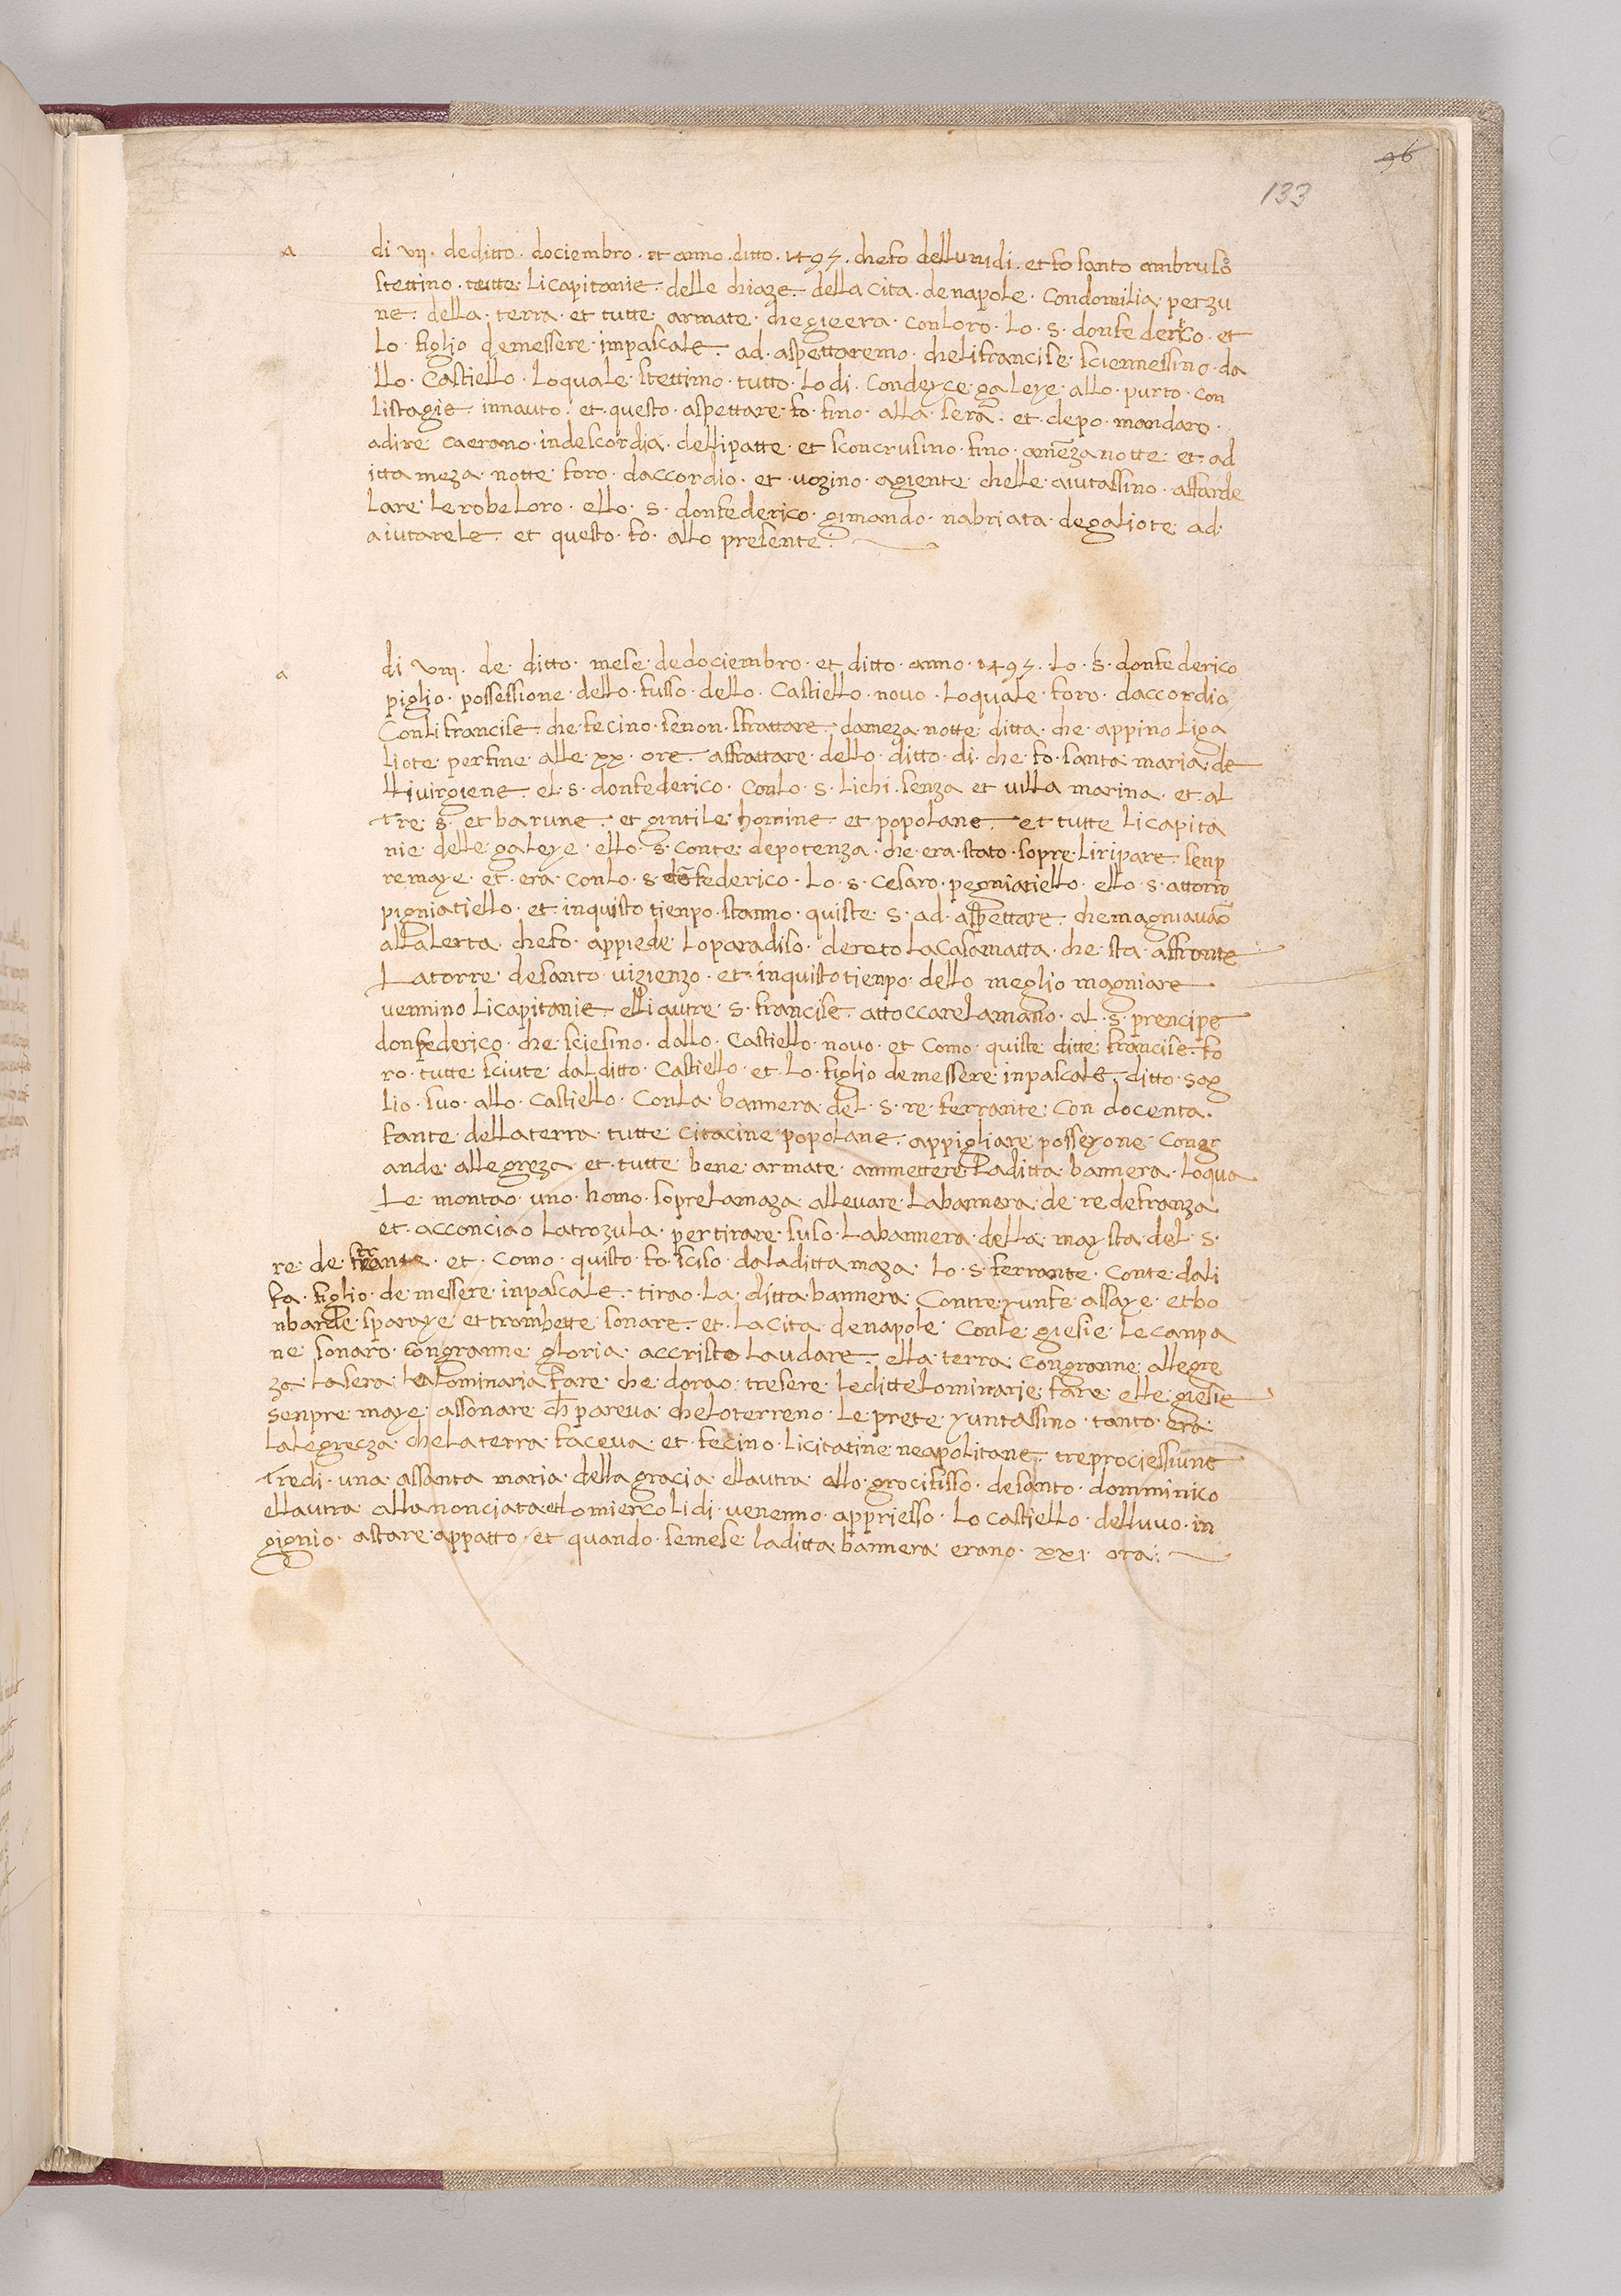 96
133
a di vii · de ditto · dociembro · et anno · ditto · 1495 · che fo dellunidi · et fo santo ambruso
stettino · tutte · li capitanie · delle chiaze · della cita · de napole · Con domilia · perzu
ne · della · terra · et tutte · armate · che gie era · con loro · lo · s · donfederico · et
lo · figlio demessere · impascale · ad · aspettaremo · che li francise · sciermessino · da
llo · Castiello · lo quale · stettimo · tutto · lo di · Con deyce · galeye · allo · purto · con
li stagie · innauto · et · questo · aspettare · fo · fino · alla · sera · et · depo · mandaro ·
adire · ca erano · in descordia · delli patte · et sconcrusino · fino · a meza notte · et · ad
itta meza · notte · foro · daccordio · et · vozino · agiente · chelle · aiutassino · affarde
lare · le robe loro · ello · s · donfederico · gi mando · na briata · de galiote · ad ·
aiutarele · et questo · fo · allo presente ·
a di viii · de · ditto · mese · de dociembro · et ditto · anno · 1495 · lo · s · donfederico
piglio · possessione · dello · fusso · dello · Castiello · novo · lo quale · foro · daccordio
Con li francise · che · fecino · senon · sfrattare · da meza · notte · ditta · che · appino liga
liote · perfine · alle · xx · ore · affrattare · dello · ditto · di · che · fo · santa · maria · de
lli virgiene · el · s · donfederico · Conlo · s · lichi · senza et villa marina · et · al
tre · s · et barune · et gintile homine · et popolane · et tutte li capita
nie · delle galeye · ello · s · Conte · de potenza · che · era · stato · sopre · li ripare · senp
re maye · et · era · conlo · s · donfederico · Lo · s · cesaro · pegniatiello · ello · s · attorro
pigniatiello · et · in quisto tienpo · stanno · quiste · s · ad · aspettare · che magniavano
alla lerta · che fo · appiede · lo paradiso · dereto la casamatta · che · sta · affronte
La torre · de santo · vizienzo · et · in quisto tienpo · dello meglio magniare
vennino li capitanie · elli autre · s · francise · attoccare la mano · al · s · prencipe
donfederico · che · sciesino · dallo · Castiello · novo · et Como · quiste ditte · francise · fo
ro · tutte · sciute · dal ditto · Castiello · et · lo · figlio de messere · inpascale · ditto · sag
lio · suo · allo · Castiello · Conla · bannera · del · s · re · ferrante · Con docenta ·
fante · della terra · tutte · citacine · popolane · appigliare · posseyone · Congr
ande · allegreza · et · tutte · bene · armate · ammettere · la ditta · bannera · loqua
le · montao · uno · homo · sopre la maza · allevare · la bannera · de · re de franza
et · acconciao la trozula · per tirare · suso · la bannera · della · maysta · del · s ·
re · de · ferrante · et · Como · quisto · fo · sciso · dala ditta maza · lo · s · ferrante · Conte · dali
fa · figlio · de messere · inpascale · tirao · la · ditta · bannera · Con tre · yunfe · assaye · et bo
nbarde · sparaye · et trombette · sonare · et · la cita · de napole · Conle · giesie · le canpa
ne · sonaro · congranne · gloria · accristo laudare · ella · terra · congranne · allegre
za · la sera · la lominaria fare · che · dorao · tre sere · le ditte lominarie · fare · elle · giesie
senpre · maye · assonare · che pareva · che lo terreno · le prete · yuntassino · tanto · era
lalegrecza · che la terra · faceva · et · fecino · li citatine · neapolitane · tre prociessiune
tre di · una · assanta maria · della gracia · ellautra · allo · grocifisso · de santo · domminico
ellautra · alla nonciata et lo miercolidi · venenno · appriesso · lo castiello · delluvo · in
gignio · astare · appatto · et quando · semese · la ditta · bannera · erano · xxi · ora